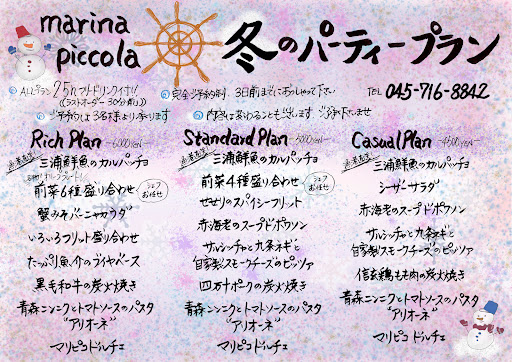 marina
piccola
冬のパーティープラン
ALLプラン 2.5h フリードリンク付!!
(ラストオーダー30分前)
完全ご予約制 3日前までにおっしゃって下さい
TEL 045-716-8842
ご予約は3名様より承ります
内容は変わることもございます ご了承下さいませ
Rich Plan ー6000YENー
三浦鮮魚のカルパッチョ
前菜6種盛り合わせ
シェフお任せ
蟹みそバーニャカウダ
いろいろフリット盛り合わせ
たっぷり魚介のブイヤベース
黒毛和牛の炭火焼き
青森ニンニクとトマトソースのパスタ
"アリオーネ"
マリピコドルチェ
Standard Plan ー5000YENー
三浦鮮魚のカルパッチョ
前菜4種盛り合わせ
シェフお任せ
せせりのスパイシーフリット
赤海老のスープドポワソン
サルシッチャと九条ネギと
自家製スモークチーズのピッツァ
四万十ポークの炭火焼き
青森ニンニクとトマトソースのパスタ
"アリオーネ"
マリピコドルチェ
Casual Plan ー4500YENー
三浦鮮魚のカルパッチョ
シーザーサラダ
赤海老のスープドポワソン
サルシッチャと九条ネギと
自家製スモークチーズのピッツァ
信玄鶏もも肉の炭火焼き
青森ニンニクとトマトソースのパスタ
"アリオーネ"
マリピコドルチェ